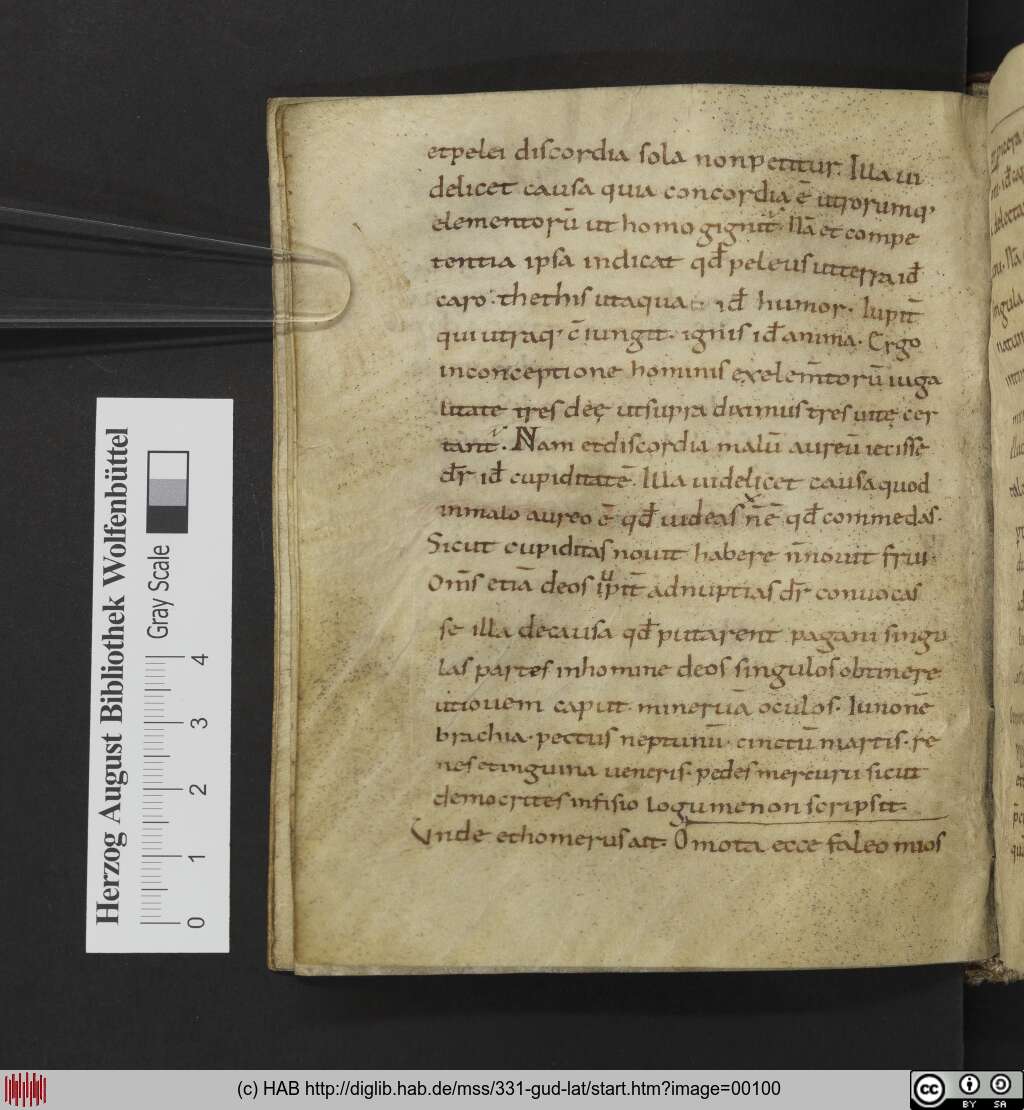 et pelei discordia sola non petitur. Illa ui
delicet causa quia concordia ē utrorumq;
elementorū ut homo gignit̄. Nā et compe
tentia ipsa indicat qđ peleus ut terra iđ
caro. thethis ut aqua iđ humor. Iupit̄
qui utraq; c̄iungit. ignis iđ anima. Ergo
in conceptione hominis ex elem̄torū iuga
litate tres deę ut supra diximus tres uitę cer
tant. Nam et discordia malū aureū iecisse
dr̄ iđ cupiditatē. Illa uidelicet causa quod
in malo aureo ē qđ uideas n̄ ē qđ commedas.
Sicut cupiditas nouit habere n̄ nouit frui.
Om̄s etiā deos ad nuptias dr̄ conuocas
se illa de causa qđ putarent pagani singu
las partes in homine deos singulos obtinere
ut iouem caput. mineruā oculos. Iunonē
brachia. pectus neptunū. cinctū martis. re
nes et inguina ueneris. pedes mercurii sicut
democrites in fisio logumenon scripsit.
Unde et homerus ait. Omota ecce faleo mios
Herzog August Bibliothek Wolfenbüttel
Gray Scale
0 1 2 3 4
(c) HAB http://diglib.hab.de/mss/331-gud-lat/start.htm?image=00100
cc BY SA